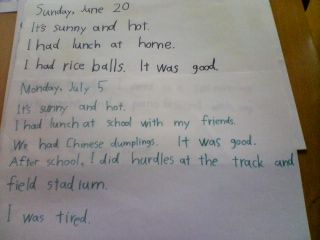 Sunday, June 20
It's sunny and hot.
I had lunch at home.
I had rice balls. It was good.
Monday, July 5
It's sunny and hot.
I had lunch at school with my friends.
We had Chinese dumplings. It was good.
After school, I did hurdles at the track and
field stadium.
I was tired.